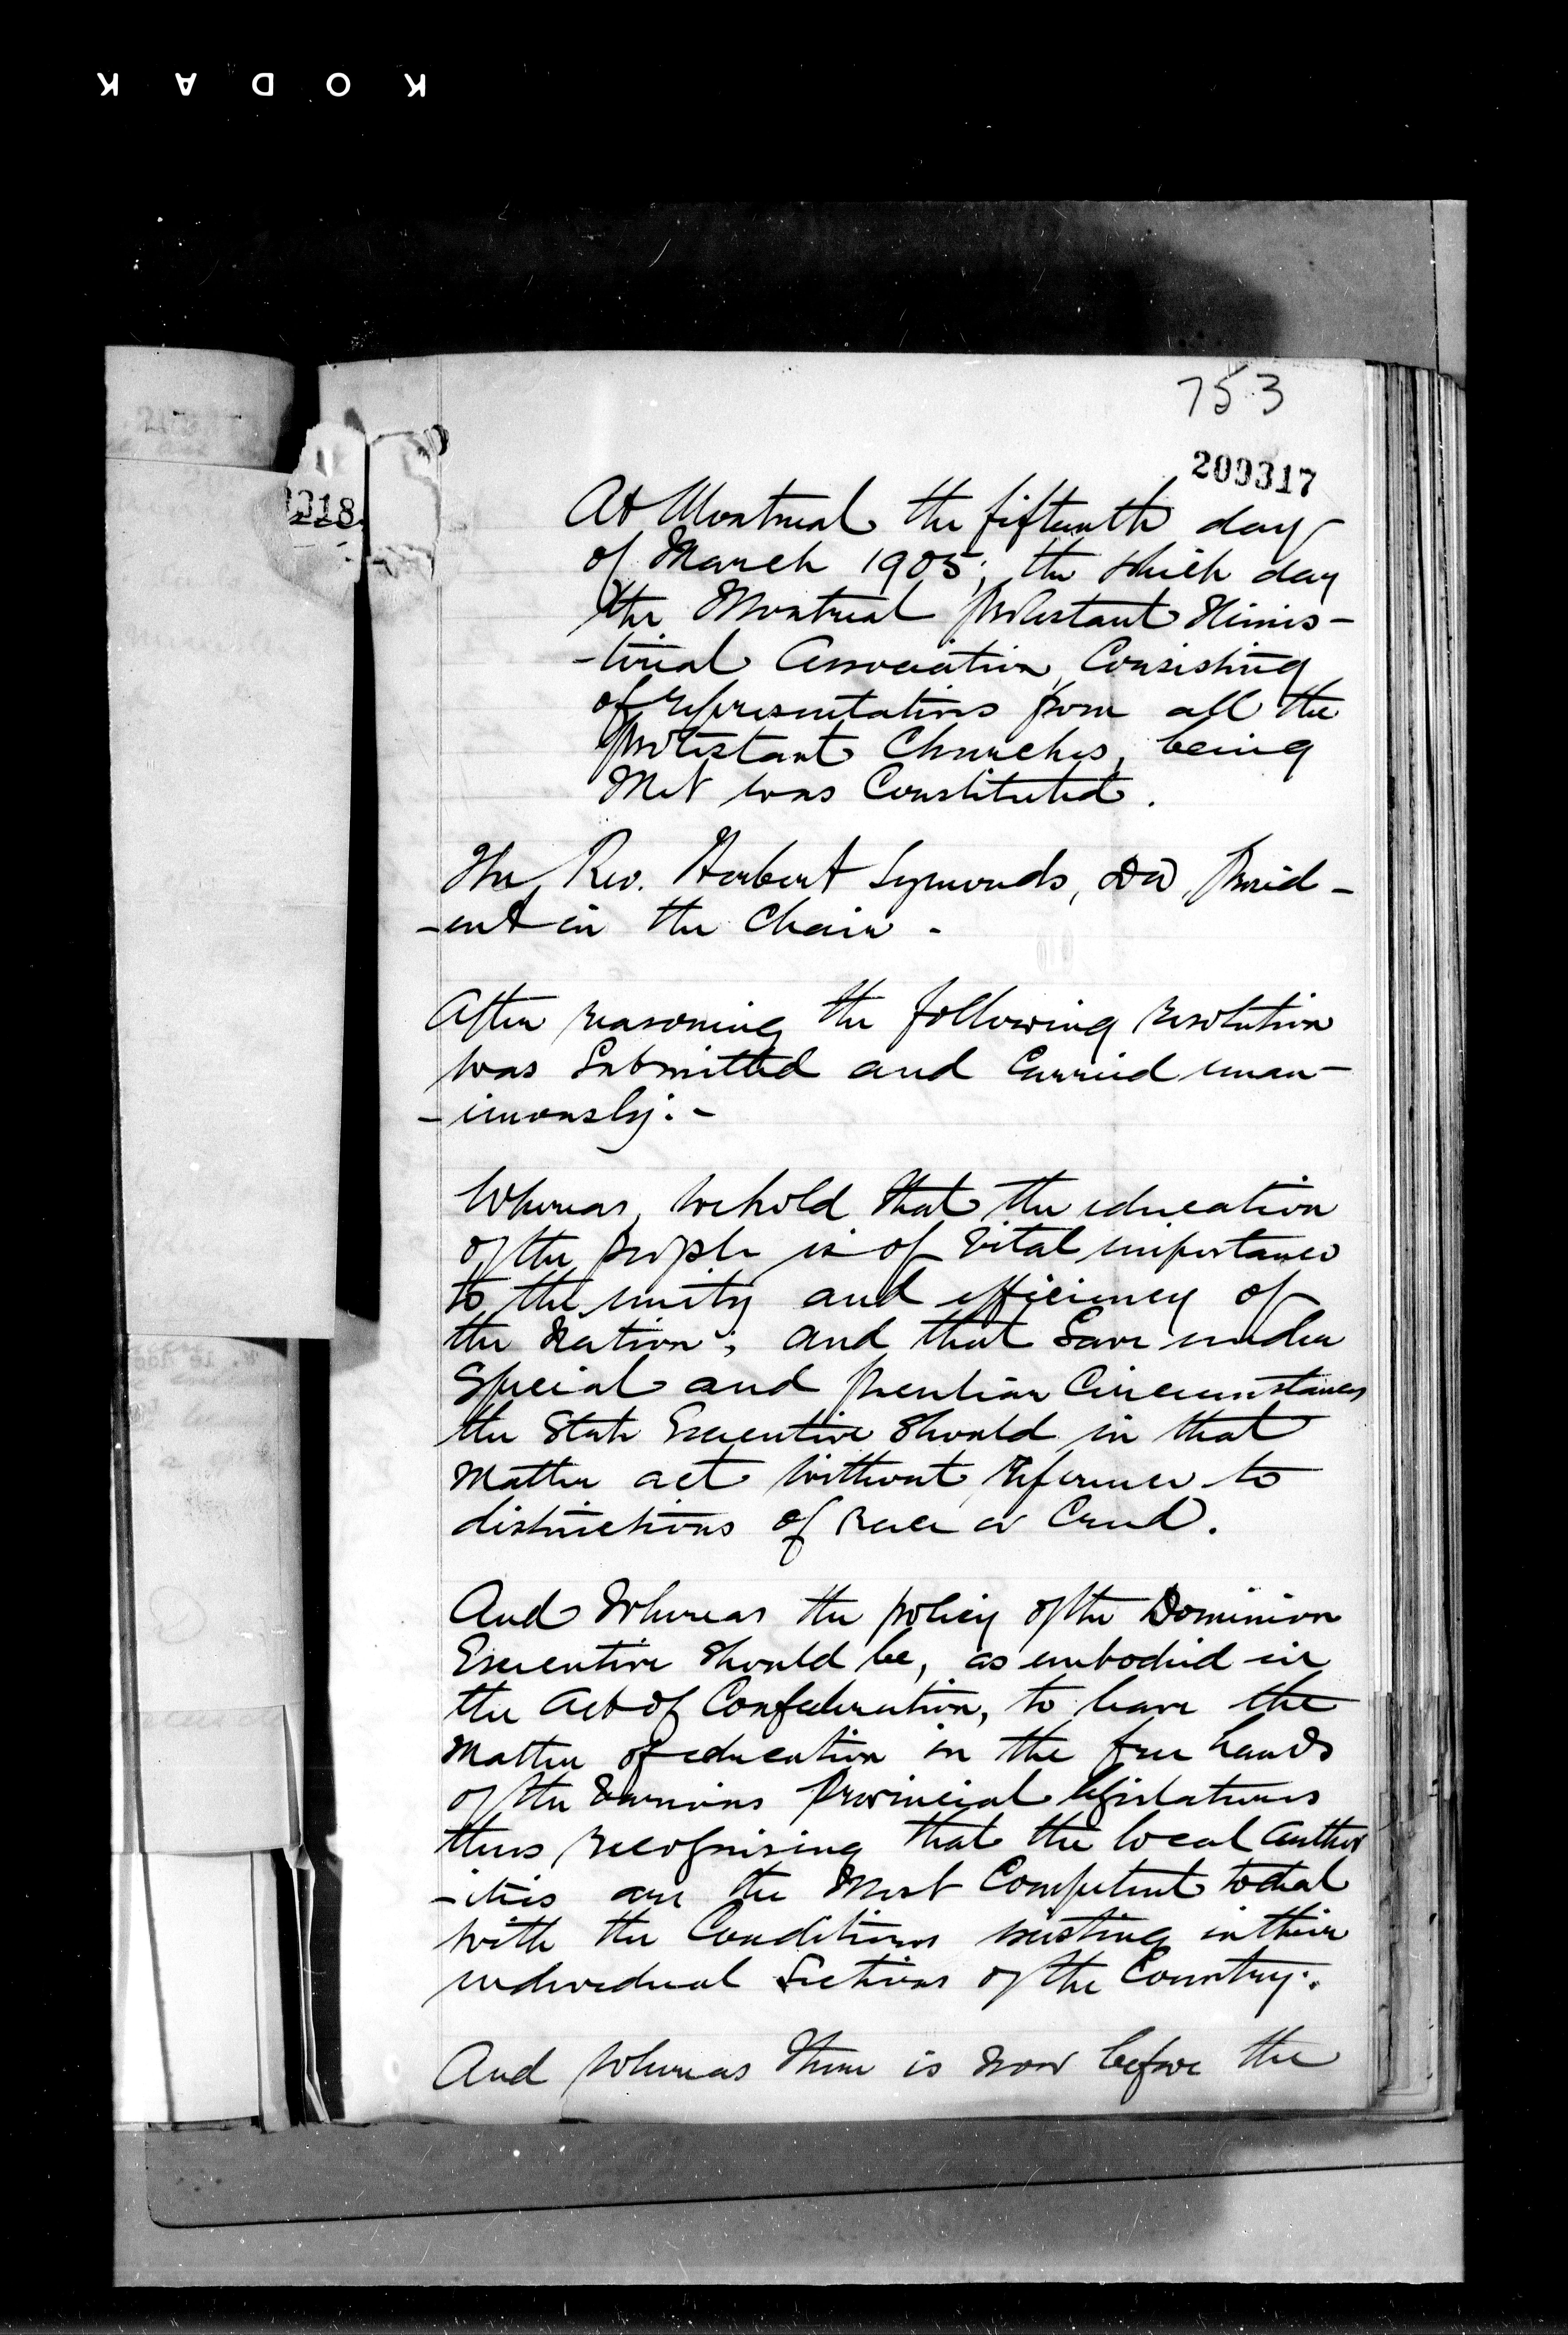 KODAK
753
209317
318
At Montreal the fifteenth day
of March 1905; the which day
the Montreal Protestant Minis-
-terial Association, Consisting
of representatives from all the
Protestant Churches, being
Met was Constituted.
The Rev. Herbert Symonds, DD, Presid-
-ent in the Chair -
After reasoning the following resolution
was Submitted and Carried unan-
-imously: -
Whereas, we hold that the education
of the people is of Vital importance
to the unity and efficiency of
the Nation; and that Save under
Special and peculiar Circumstances
the State Executive Should in that
Matter act without reference to
distinctions of race or Creed.
And Whereas the policy of the Dominion
Executive Should be, as embodied in
the Act of Confederation, to leave the
Matter of education in the free hands
of the Various Provincial legislatures
thus recognising that the local author
-ities are the Most Competent to deal
with the Conditions existing in their
individual Sections of the Country:
And Whereas there is now before the